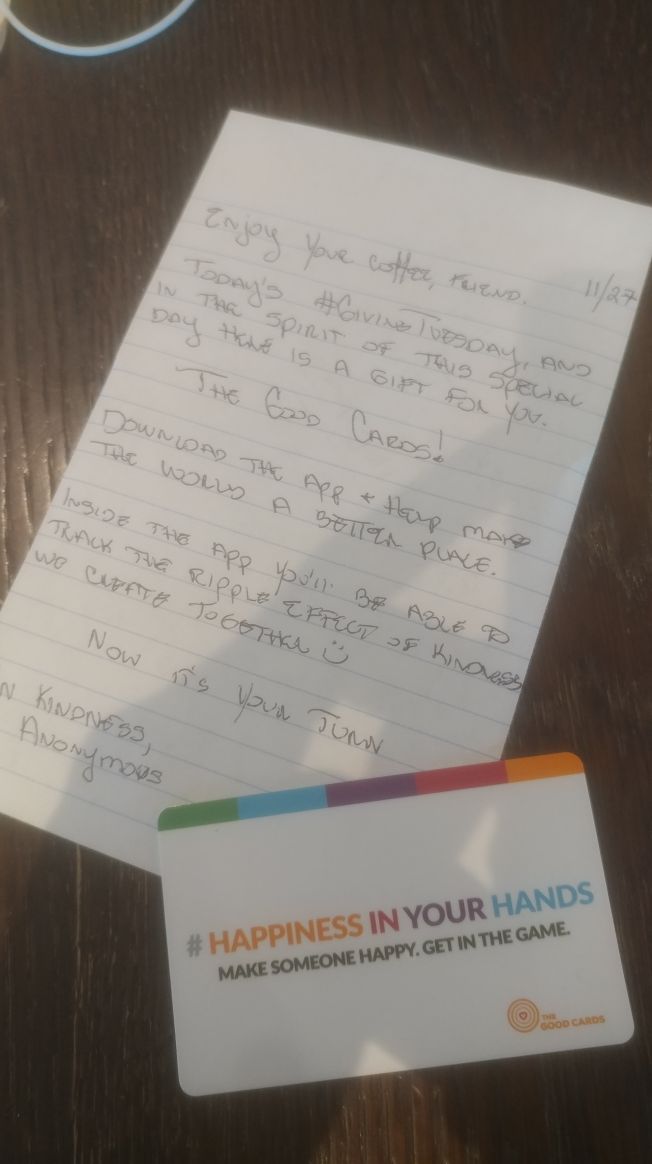 Enjoy your coffee, friend.
11/27
Today's #GivingTuesday, and
in the spirit of this special
day here is a gift for you.
The Good Cards!
Download the app + help make
the world a better place.
Inside the app you'll be able to
track the ripple effect of kindness
we create together
Now it's your turn
n kindness,
Anonymous
# HAPPINESS IN YOUR HANDS
MAKE SOMEONE HAPPY. GET IN THE GAME.
THE
GOOD CARDS